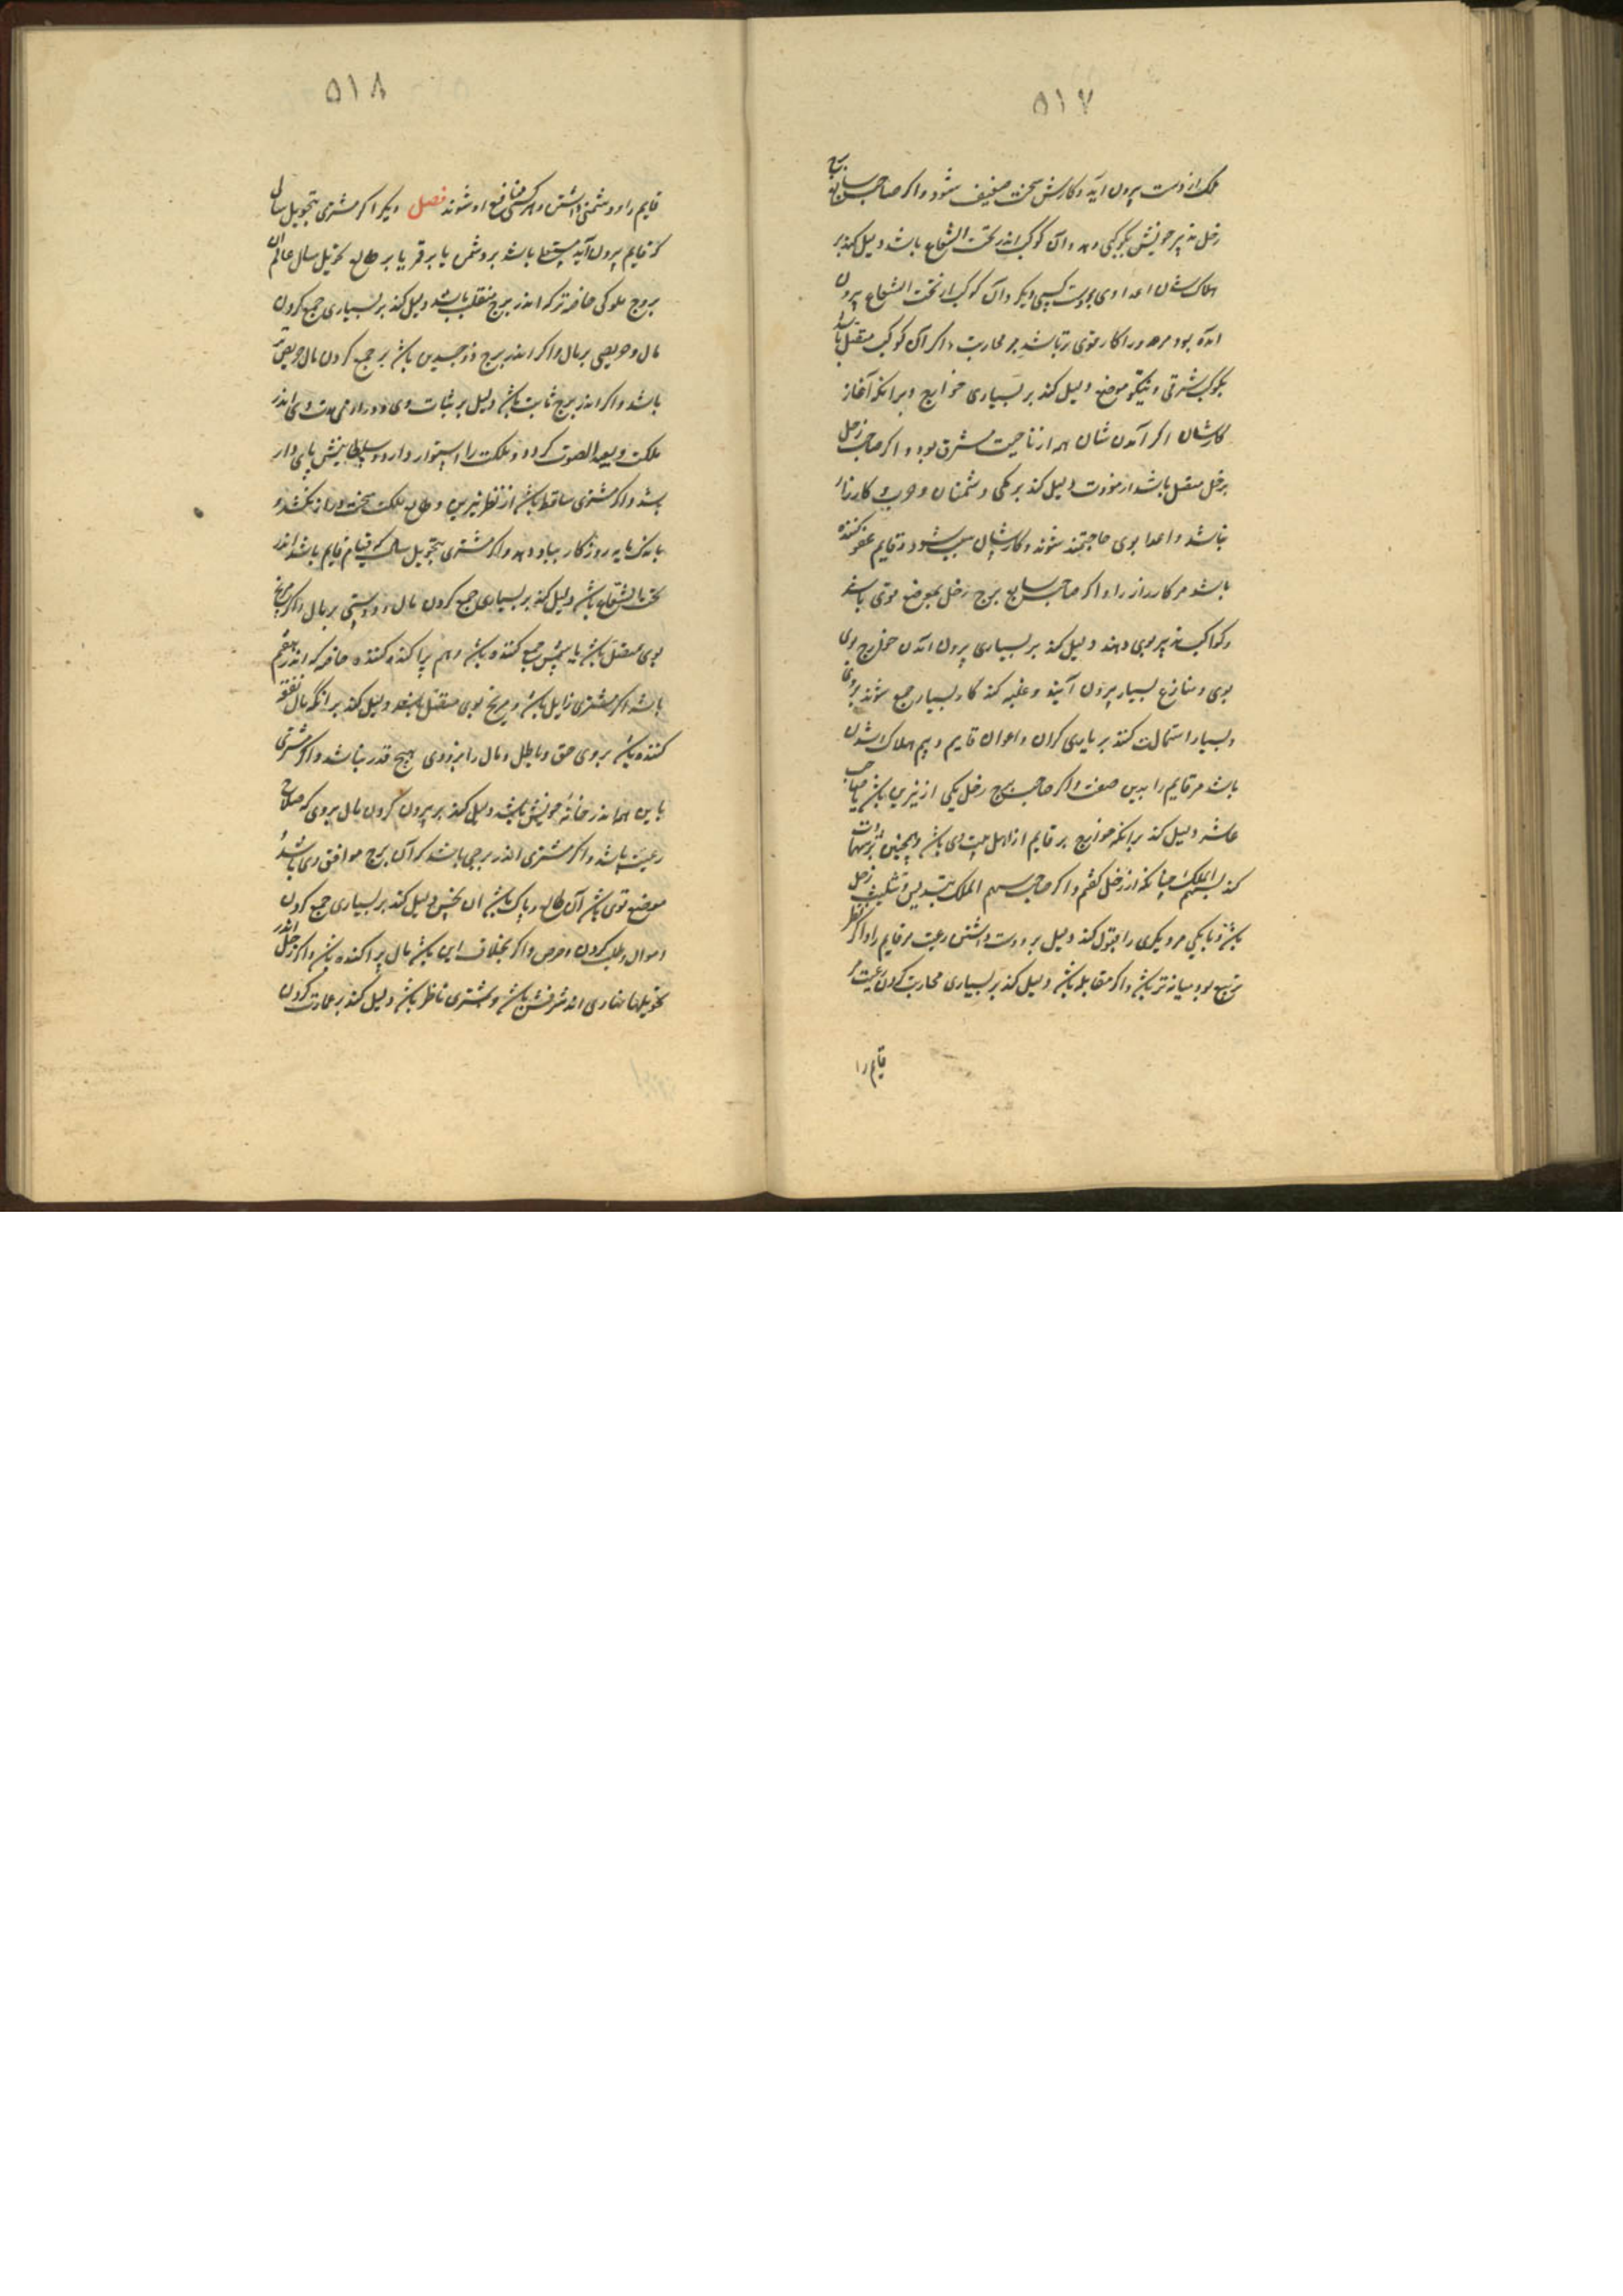 ۵۱۷
ملک از دست بیرون آید و کارش سخت ضعیف شود و اگر صاحب سابع
زحل تدبیر خویش بکوکبی دهد و آن کوکب اندر تحت الشعاع باشد دلیل کند بر
هلاک شدن اعدا وی بدست کسی دیگر و آن کوکب از تحت الشعاع بیرون
آمده بود مر او را کار قوی تر باشد بر محاربت و اگر آن کوکب متصل باشد
بکوکب شرقی و نیکو موضع دلیل کند بر بسیاری خوارج و بر آنکه آغاز
کارشان اگر آمدن شان همه از ناحیت مشرق بود و اگر صاحب زحل
بزحل متصل باشد دلیل کند بر دشمنان و حرب و کارزار
نباشد و اعدا بوی حاجتمند شوند و کارشان و قایم عفو کننده
باشد مر کارزار را و اگر صاحب سابع برج زحل بموضع قوی باشد
و کواکب تدبیر بوی دهند دلیل کند بر بسیاری بیرون آمدن خوارج بوی
بوی و منازع بسیار بیرون آیند و غلبه کند کار بسیار جمع شوند بروی
و بسیار استمالت کنند بر یاری کران و اعوان قایم و بیم هلاک شدن
باشد مر قایم را بدین صفت و اگر صاحب برج زحل یکی از نیرین باشد یا صاحب
عاشر دلیل کند بر آنکه خوارج بر قایم از اهل بیت وی باشد و همچنین
کند بسهم الملک چنانکه از زحل گفتم و اگر صاحب سهم الملک بتسدیس و تثلیث زحل
باشد و یا یکی مر دیگری را قبول کند دلیل بر دوست داشتن رعیت مر قایم را و اگر نظر
تربیع بود میانه تر باشد و اگر مقابله باشد دلیل کند بر بسیاری محاربت کردن رعیت مر
قایم را
۵۱۸
قایم را و دشمنی داشتن و هر کسی منافع او شوند فصل دیگر اگر مشتری بتحویل سالی
که قایم بیرون آید مستعلی باشد بر شمس یا بر قمر یا بر طالع تحویل سال عالم
بروج ملوکی خاصه ترکه اندر برج منقلب باشد دلیل کند بر بسیاری جمع کردن
مال و حریصی بر مال و اگر اندر برج ذو جسدین باشد بر جمع کردن مال حریص
باشد و اگر اندر برج ثابت باشد دلیل بر ثبات وی و درازی مدت وی اندر
ملکت و بعید الصوت کردد و ملکت را استوار دارد و سلطانیش پای دار
باشد و اگر مشتری ساقط باشد از نظر نیرین و طالع ملکت سخت دراز نکشد و
باندک مایه روزگار بباد دهد و اگر مشتری بتحویل سالی که قیام قایم باشد اندر
تحت الشعاع باشد دلیل کند بر بسیاری جمع کردن مال و دوستی بر مال و اگر مریخ
بوی متصل باشد یا شمس جمع کننده باشد و هم پراکنده کننده خاصه که اندر هفتم
باشد و اگر مشتری زایل باشد و مریخ بوی متصل باشد دلیل کند بر آنکه مال نفقه
کننده باشد بروی حق و باطل و مال را بنزد وی هیچ قدر نباشد و اگر مشتری
با این همه اندر خانه خویش باشد دلیل کند بر بیرون کردن مال بروی که صلاح
رعیت باشد و اگر مشتری اندر برجی باشد که آن برج موافق وی باشد
موضع قوی باشد آن طالع و پاک باشد از نحس دلیل کند بر بسیاری جمع کردن
اموال و طلب کردن و حرص و اگر بخلاف این باشد مال پراکنده باشد و اگر زحل اندر
تحویلها نهاری اندر شرفش باشد و مشتری ناظر باشد دلیل کند بر عمارت کردن